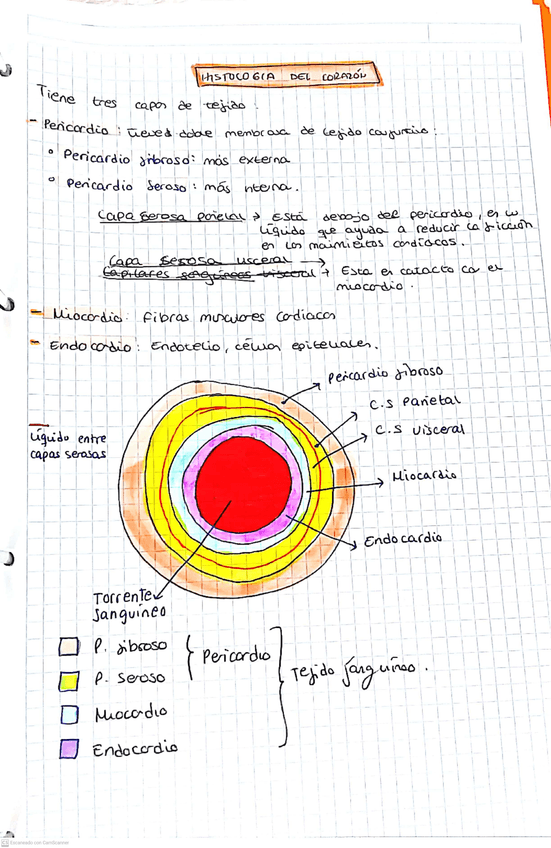 HISTOLOGIA DEL CORAZÓN
Tiene tres capas de tejido:
- Pericardio: doble membrana de tejido conjuntivo:
° Pericardio fibroso: más externa
° Pericardio seroso: más interna.
Capa serosa parietal → Está debajo del pericardio, es un
líquido que ayuda a reducir la fricción
en los movimientos cardíacos.
Capa serosa visceral →
Capilares sanguineos visceral → Esta en contacto con el
miocardio.
- Miocardio: Fibras musculares cardiacas
- Endocardio: Endotelio, células epiteliales.
Pericardio fibroso
C.S Parietal
C.S Visceral
Líquido entre
capas serosas
Miocardio
Endocardio
Torrente
sanguíneo
P. fibroso
Pericardio
P. Seroso
Tejido sanguíneo.
Miocardio
Endocardio
Escaneado con CamScanner